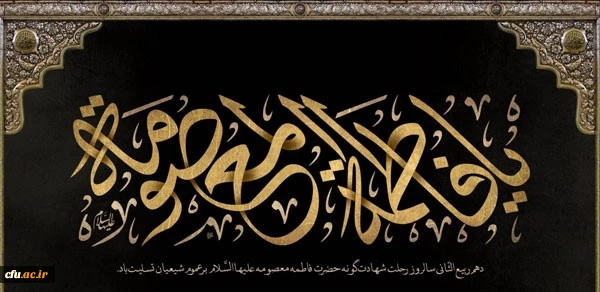 یا فاطمة المعصومة
علیها السلام
دهم ربیع الثانی سالروز رحلت شهادت‌گونه حضرت فاطمه معصومه علیها السَّلام بر عموم شیعیان تسلیت باد.
cfu.ac.ir